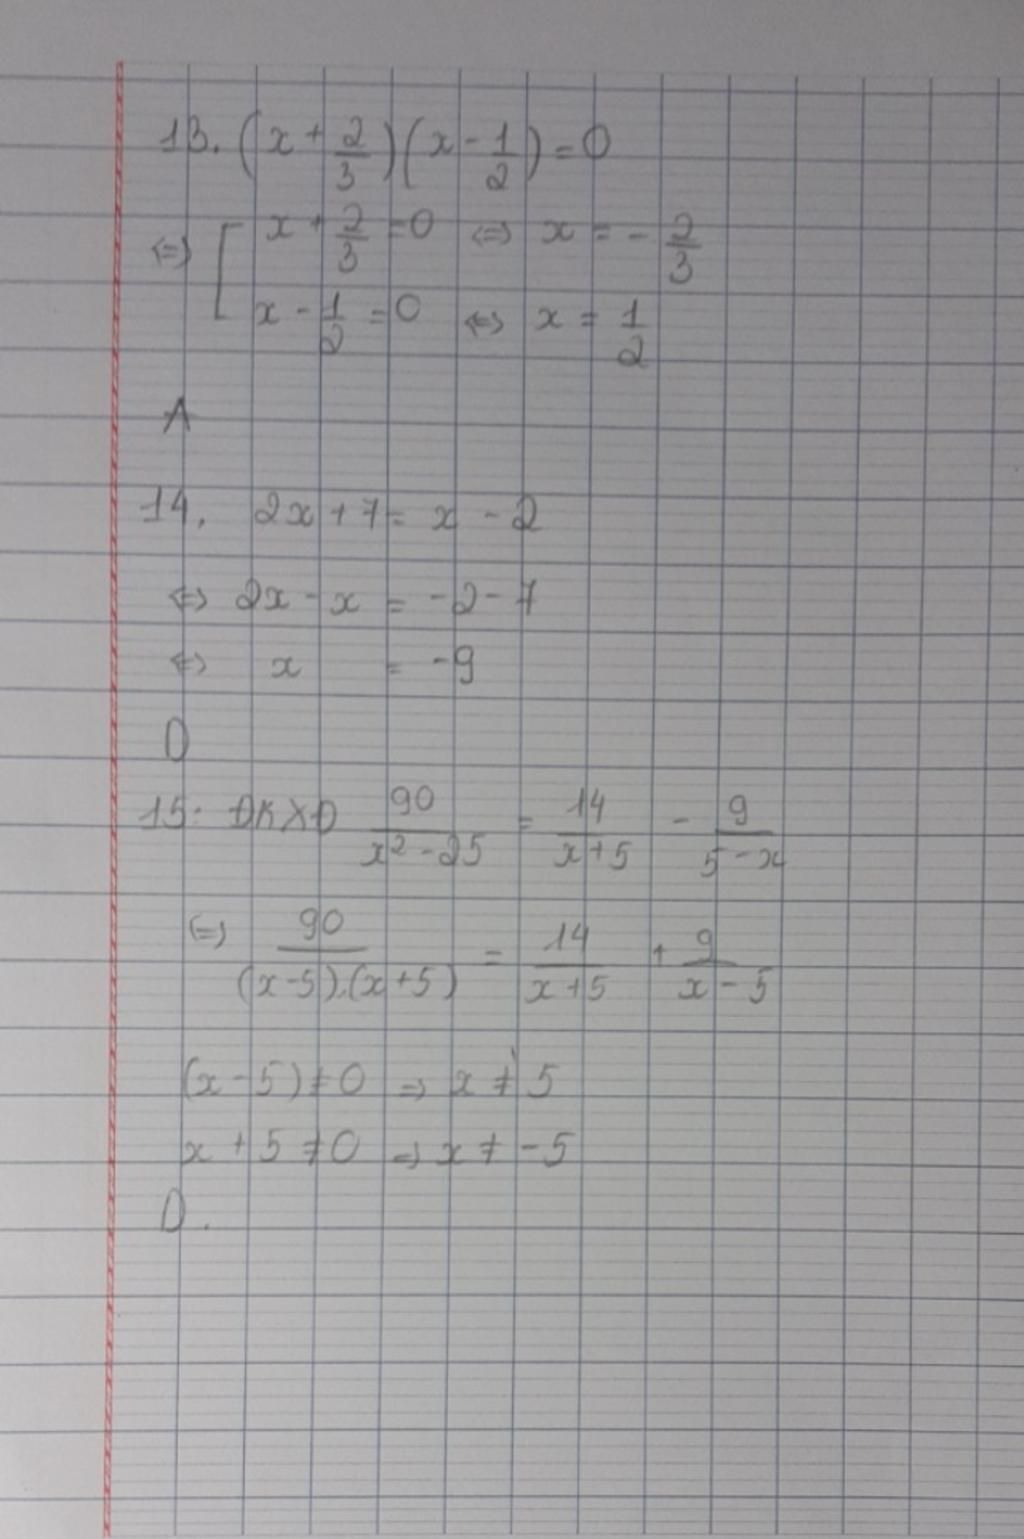 13. (x + 2/3)(x - 1/2) = 0
<=> [ x + 2/3 = 0 <=> x = - 2/3
x - 1/2 = 0 <=> x = 1/2
A
14. 2x + 7 = x - 2
<=> 2x - x = -2 - 7
<=> x = -9
D
15: ĐKXĐ 90/(x² - 25) = 14/(x + 5) - 9/(5 - x)
<=> 90/((x - 5).(x + 5)) = 14/(x + 5) + 9/(x - 5)
(x - 5) ≠ 0 => x ≠ 5
x + 5 ≠ 0 => x ≠ -5
D.